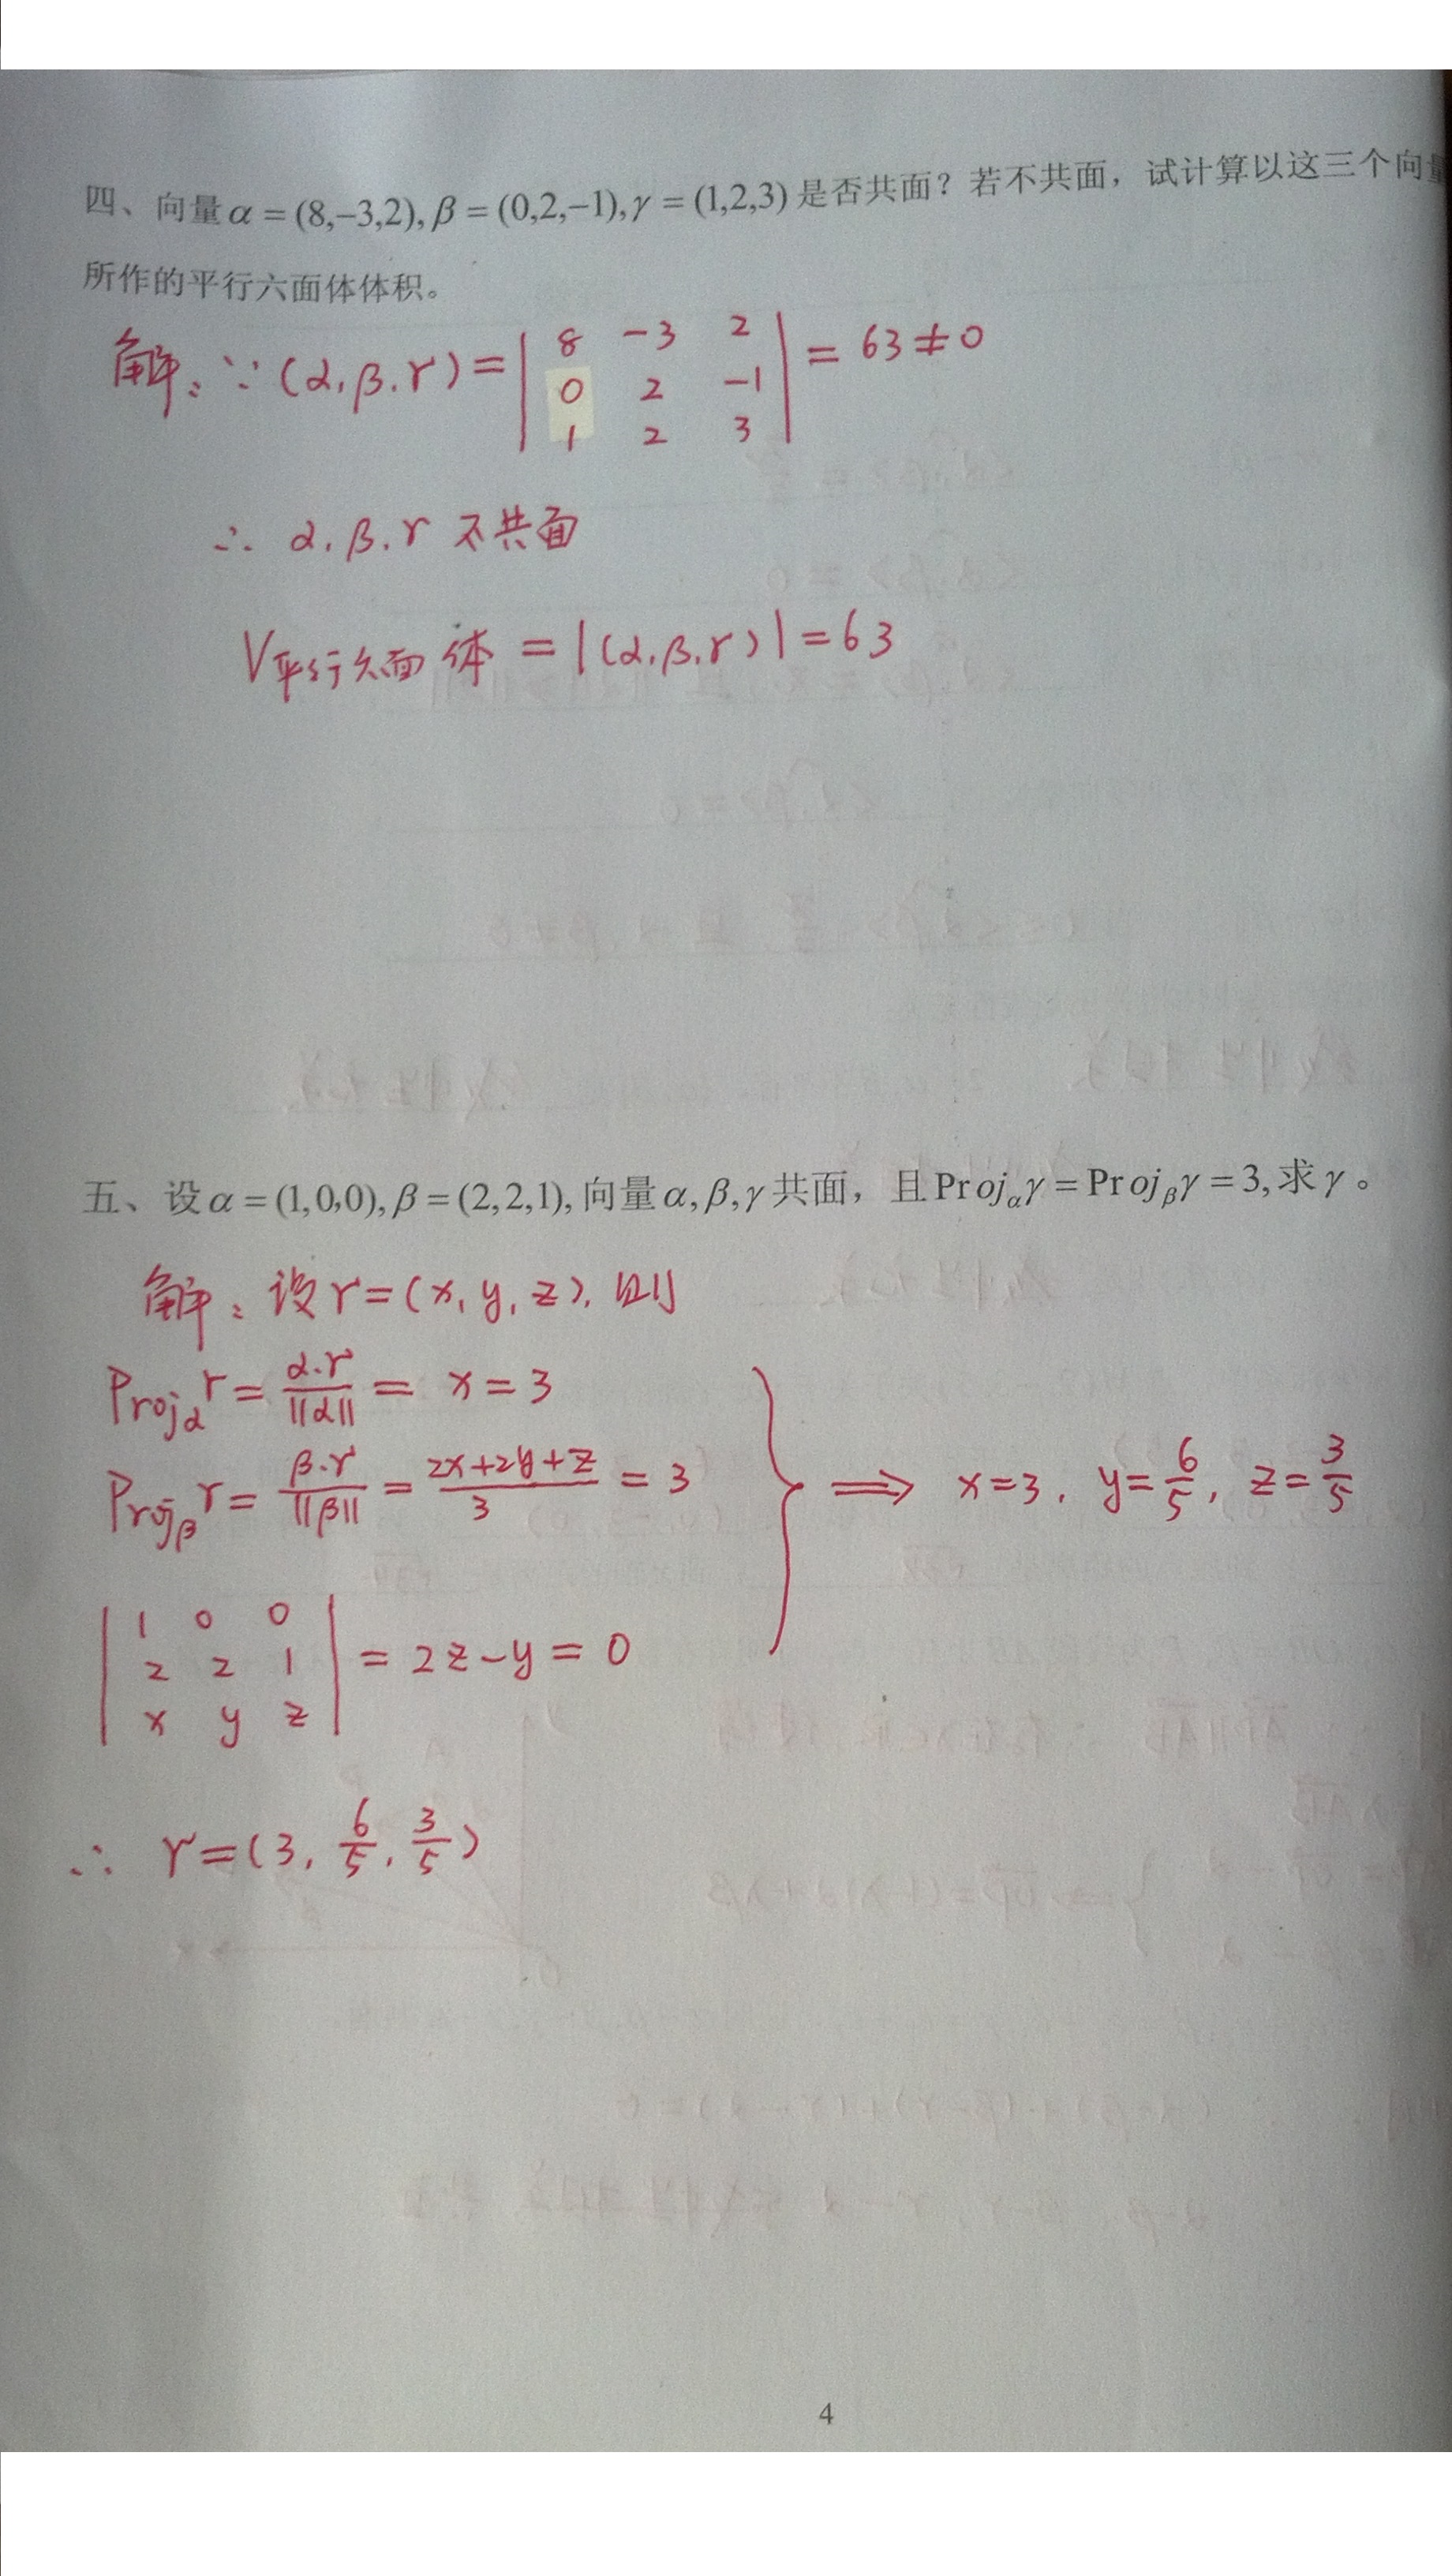 四、向量α=(8,−3,2),β=(0,2,−1),γ=(1,2,3)是否共面？若不共面，试计算以这三个向量
所作的平行六面体体积。
解：∵(α,β,γ)=| 8 −3 2 | = 63≠0
0 2 −1
1 2 3
∴ α.β.γ 不共面
V平行六面体 =|(α,β,γ)|=63
五、设α=(1,0,0),β=(2,2,1),向量α,β,γ共面，且Proj_αγ=Proj_βγ=3,求γ。
解：设γ=(x,y,z),则
Proj_αγ = α·γ/||α|| = x=3
Proj_βγ = β·γ/||β|| = 2x+2y+z/3 = 3
⟹ x=3, y=6/5, z=3/5
| 1 0 0 |
2 2 1 = 2z−y=0
x y z
∴ γ=(3, 6/5, 3/5)
4